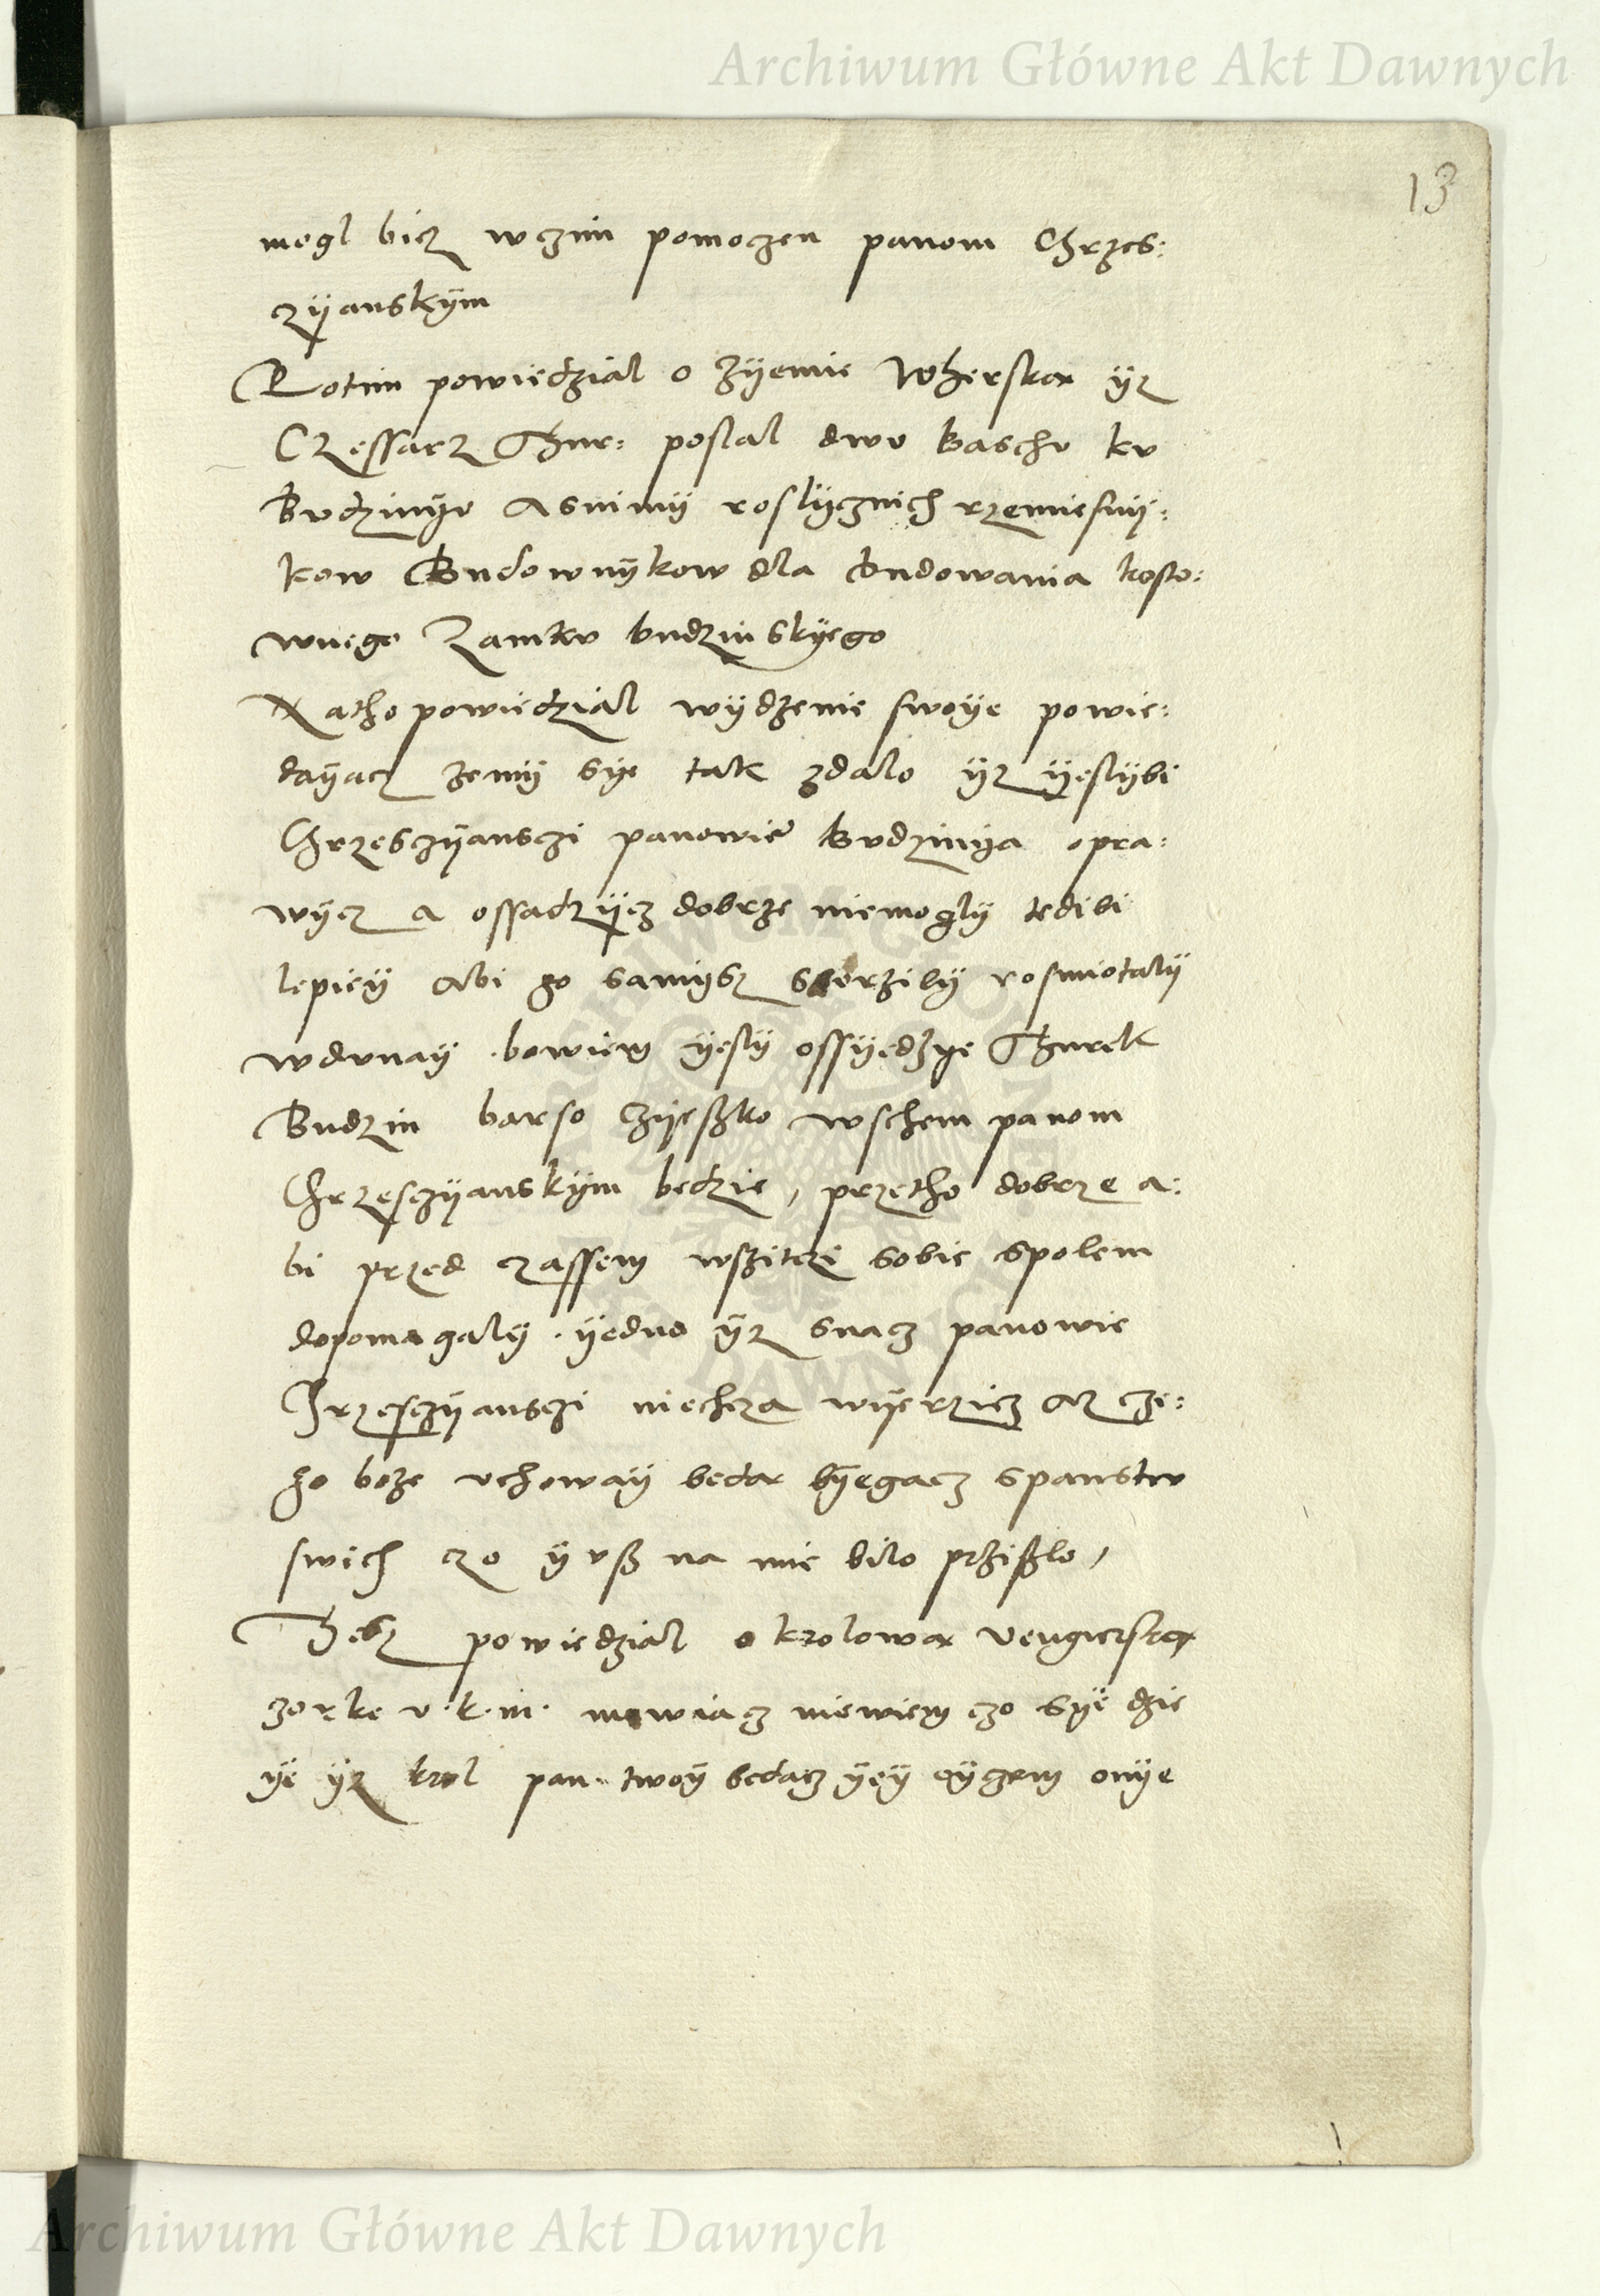 Archiwum Główne Akt Dawnych
13
mogl bicz wczim pomoczen panom Chrzes:
czÿanskÿm
Potim powiedzial o zÿemie Wherska ÿz
Czessarz Thur: poslal dwu Baschu ku
Budzinÿe Asnimÿ roslÿcznich rzemiesnÿ:
kow Budownÿkow dla budowania kosto:
wnego Zamku budzinskÿego
Natho powiedzial wÿdzenie swoÿe powie:
daÿacz zemÿ sÿe tak zdalo ÿz ÿeslÿbi
Chrzesczÿansczi panowie Budzinÿa opra:
wÿcz a ossadzÿcz dobrze niemoglÿ tedibi
lepieÿ Abi go samÿsz rosmiotalÿ
wdunaÿ . bowiem ÿeslÿ ossÿedzÿe Thurek
Budzin barso czÿeszko wschem panom
Chrzesczÿanskÿm bedzie, przetho dobrze a:
bi przed czassem wszitczi sobie spolem
dopomagalÿ . ÿedno ÿz snacz panowie
Hrzesczÿansczi niechcza wÿerzicz Az cze:
go boze uchowaÿ beda bÿegacz spanstw
swich czo ÿ usz na mie bilo prziszlo,
Thesz powiedzial o krolowa Vengierska
czorke v.k.m. mowiacz niewiem czo sÿe dzie
ÿe ÿz krol pan twoÿ bedacz ÿeÿ oÿczem onÿe
Archiwum Główne Akt Dawnych